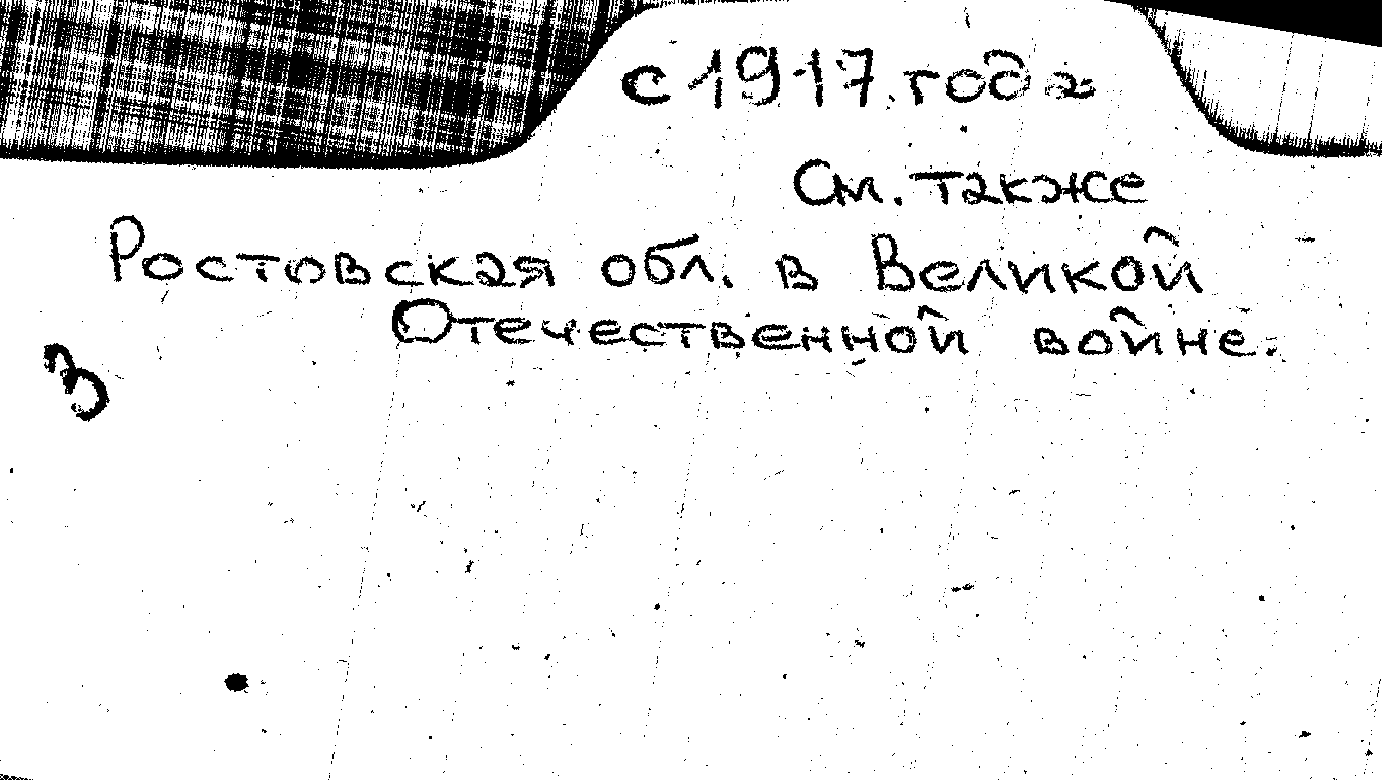 с 1917 года
См. также
Ростовская обл. в Великой
Отечественной войне.
З